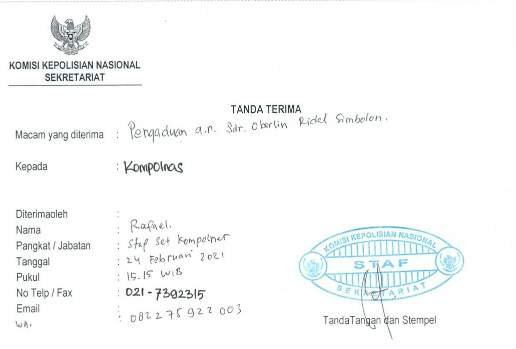 KOMISI KEPOLISIAN NASIONAL
SEKRETARIAT
TANDA TERIMA
Macam yang diterima : Pengaduan a.n. Sdr. Oberlin Ridel Simbolon.
Kepada : Kompolnas
Diterimaoleh :
Nama : Rafael.
Pangkat / Jabatan : Staf Set Kompolnas
Tanggal : 24 Februari 2021
Pukul : 15.15 WIB
No Telp / Fax : 021-7392315
Email :
WA. : 082275922003
KOMISI KEPOLISIAN NASIONAL
STAF
SEKRETARIAT
TandaTangan dan Stempel